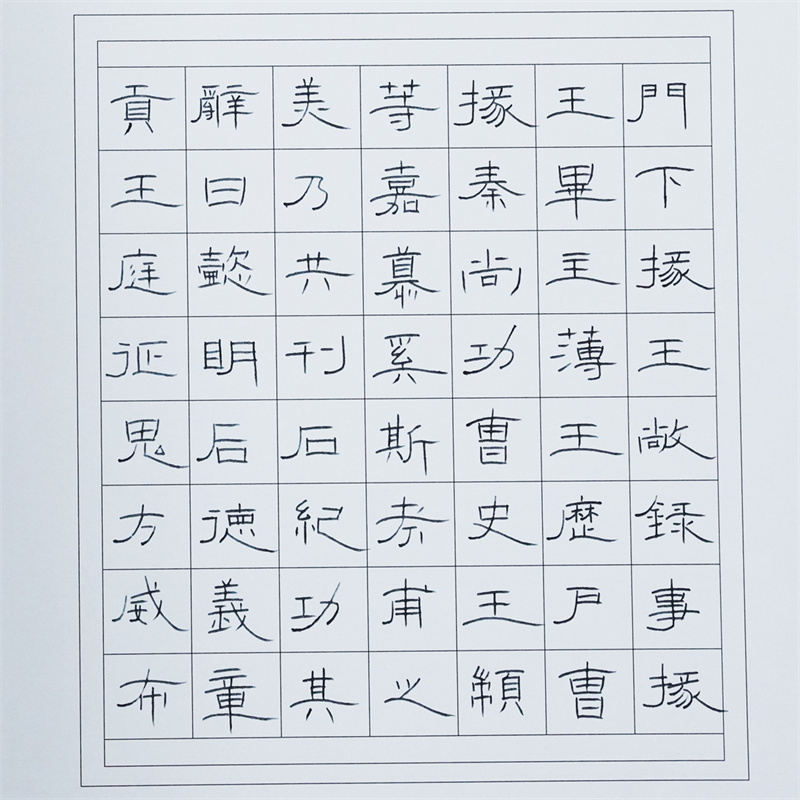 門下掾王敞録事掾
王畢主薄王歷戶曹
掾秦尚功曹史王顓
等嘉慕奚斯考甫之
美乃共刊石紀功其
辭曰懿明后德義章
貢王庭征鬼方威布